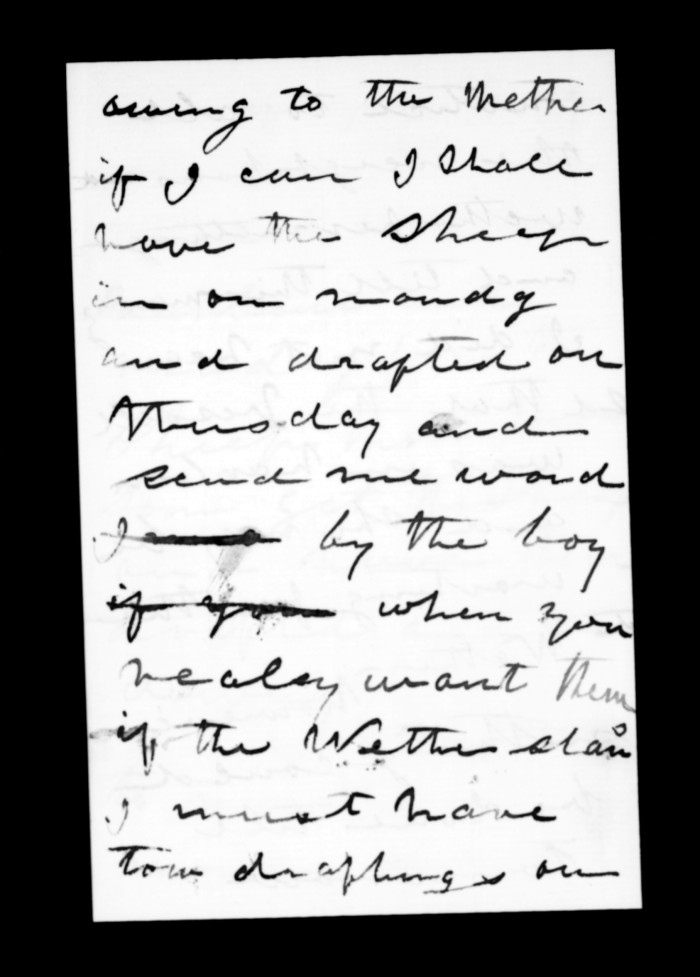 owing to the Wether
if I can I Shall
have the Sheep
in on mondy
and drafted on
thusday and
send me word
I by the boy
if you when you
realy want them
if the Wether
I must have
tow draftings on